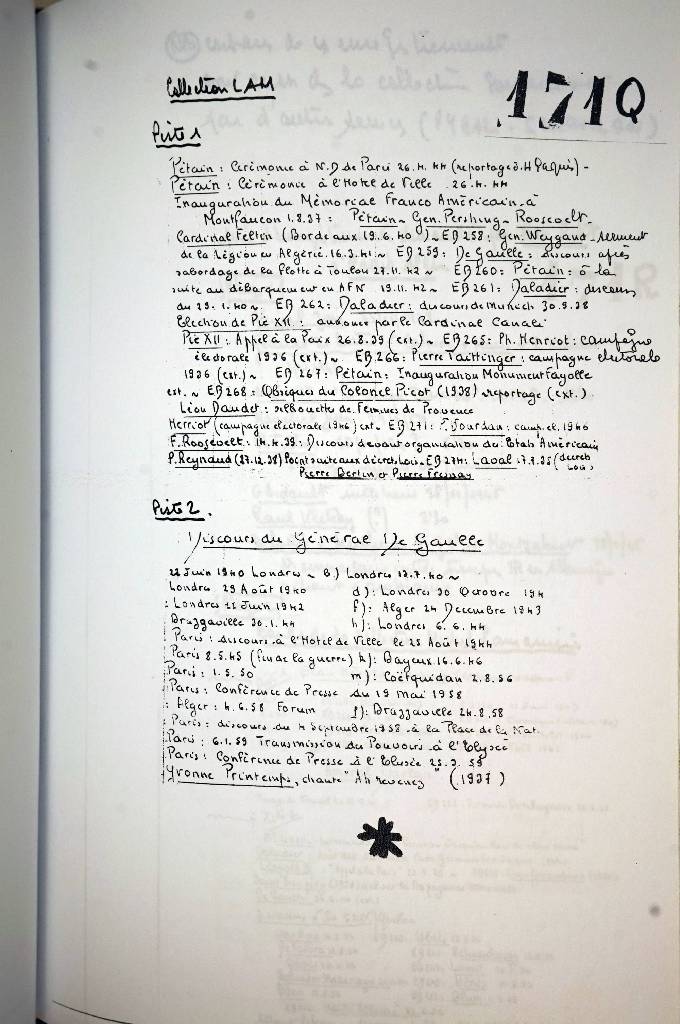 Collection LAM
171Q
Piste 1
Pétain : Cérémonie à N.D de Paris 26.4.44 (reportage d.H
Pétain : Cérémonie à l'Hotel de Ville 26.4.44
Inauguration du Mémorial Franco Américain à
Montfaucon 1.8.37 : Pétain - Gen. Pershing - Roosevelt -
Cardinal Feltin (Bordeaux 19.6.40) ~ EB 258 : Gen. Weygand - serment
de la Légion en Algérie 16.3.41 ~ EB 259 : De Gaulle : discours après
sabordage de la flotte à Toulon 27.11.42 ~ EB 260 : Pétain : à la
suite au débarquement en AFN 19.11.42 ~ EB 261 : Daladier : discours
du 29.1.40 ~ EB 262 : Daladier : du cours de Munich 30.9.38
Election de Pie XII : annonce par le Cardinal Canali
Pie XII : Appel à la Paix 26.8.39 (ext.) ~ EB 265 : Ph. Henriot : campagne
électorale 1936 (ext.) ~ EB 266 : Pierre Taittinger : campagne électorale
1936 (ext.) ~ EB 267 : Pétain : Inauguration Monument Fayolle
ext. ~ EB 268 : Obsèques du Colonel Picot (1938) reportage (ext.)
Léon Daudet : silhouette de Femmes de Provence
Herriot (campagne électorale 1946) ext. EB 271 : Jourdan : camp. el. 1946
F. Roosevelt : 14.4.39 : Discours devant organisation des Etats Américain
P. Reynaud (27.12.38) Point suite aux décrets Lois - EB 274 : Laval : 7.7.35 (decrets Lois)
Pierre Bertin et Pierre Fresnay
Piste 2.
Discours du Général De Gaulle
22 Juin 1940 Londres ~ b) Londres 13.7.40 ~
Londres 29 Août 1940 d) : Londres 30 Octobre 194
: Londres 11 Juin 1942 f) : Alger 24 Decembre 1943
Brazzaville 30.1.44 h) : Londres 6.6.44
Paris : discours à l'Hotel de Ville le 25 Août 1944
Paris 8.5.45 (fin de la guerre) k) : Bayeux 16.6.46
Paris : 1.5.50 m) : Coëtquidan 2.8.56
Paris : Conférence de Presse du 19 Mai 1958
: Alger : 4.6.58 Forum : Brazzaville 24.8.58
Paris : discours du 4 Septembre 1958 à la Place de la Nat.
Paris : 6.1.59 Transmission des Pouvoirs à l'Elysée
Paris : Conférence de Presse à l'Elysée 25.3.59
Yvonne Printemps, chante "Ah revenez" (1937)